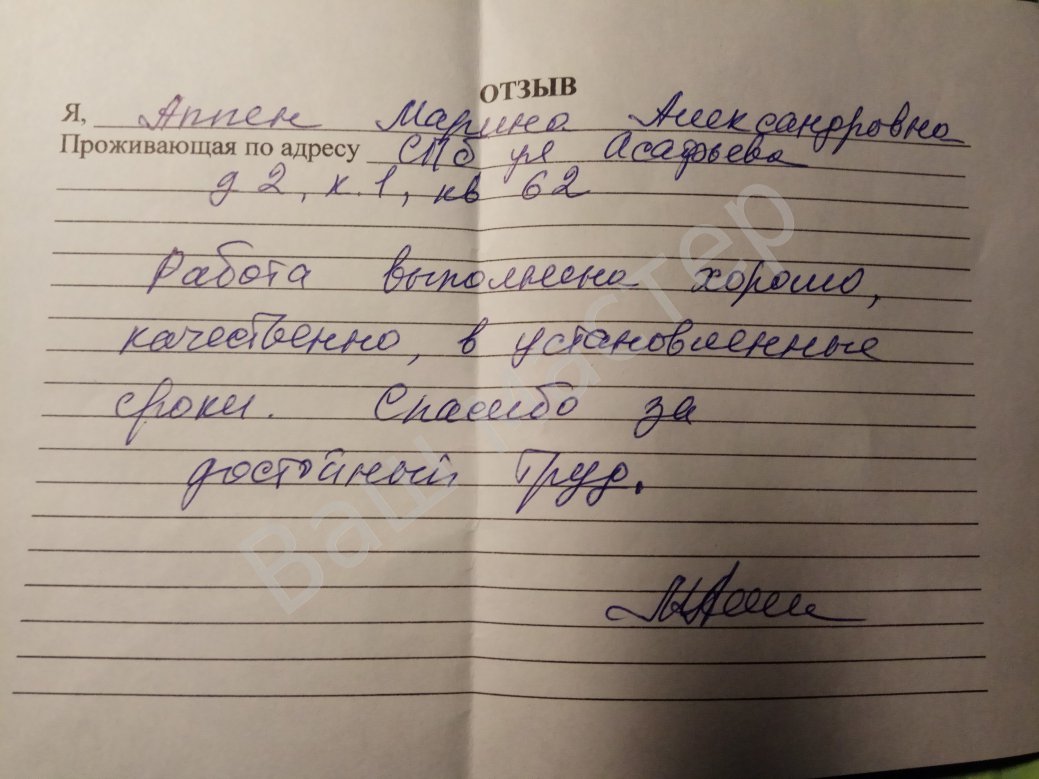 ОТЗЫВ
Я, Аппен Марина Александровна
Проживающая по адресу СПб ул Асафьева
д 2, к.1, кв 62
Работа выполнена хорошо,
качественно, в установленные
сроки. Спасибо за
достойный труд.
Ваш мастер